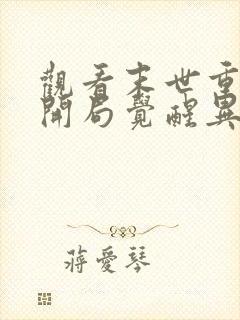 觀看末世重
開局覺醒異
蔣愛琴